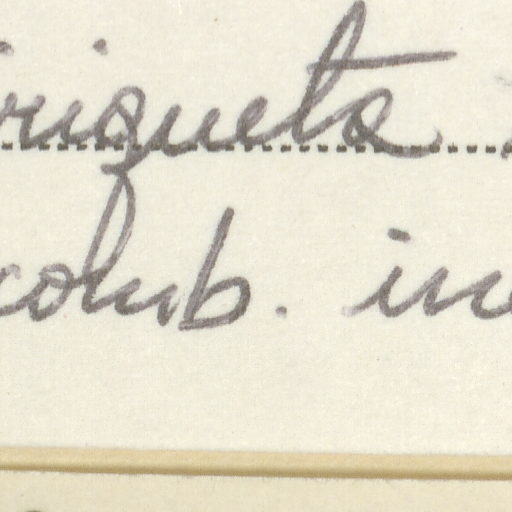 riqueta
comb. in